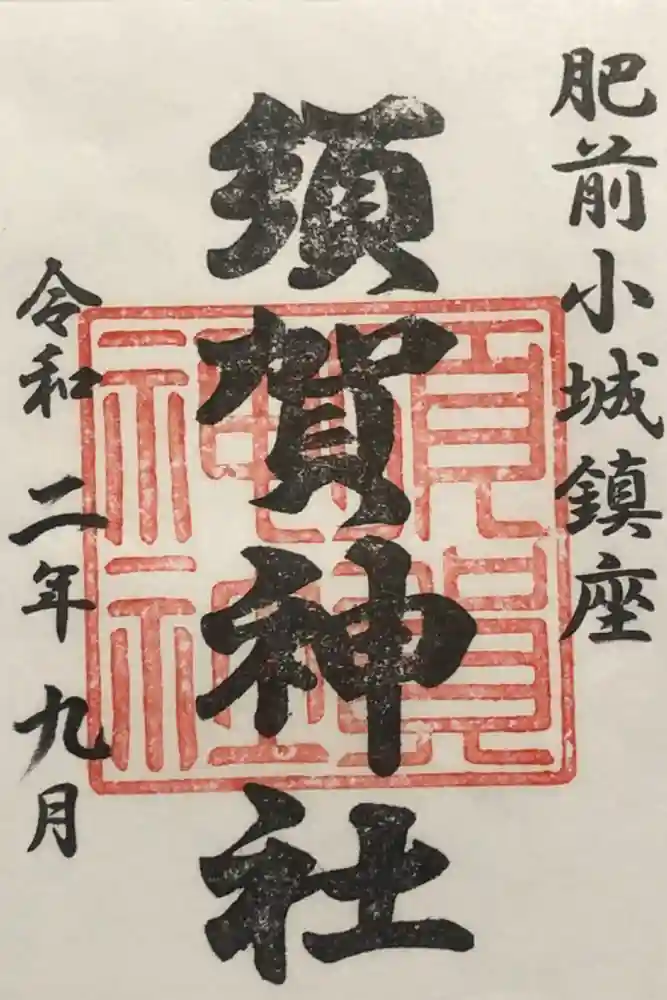 肥前小城鎮座
須賀神社
須賀神社
令和二年九月